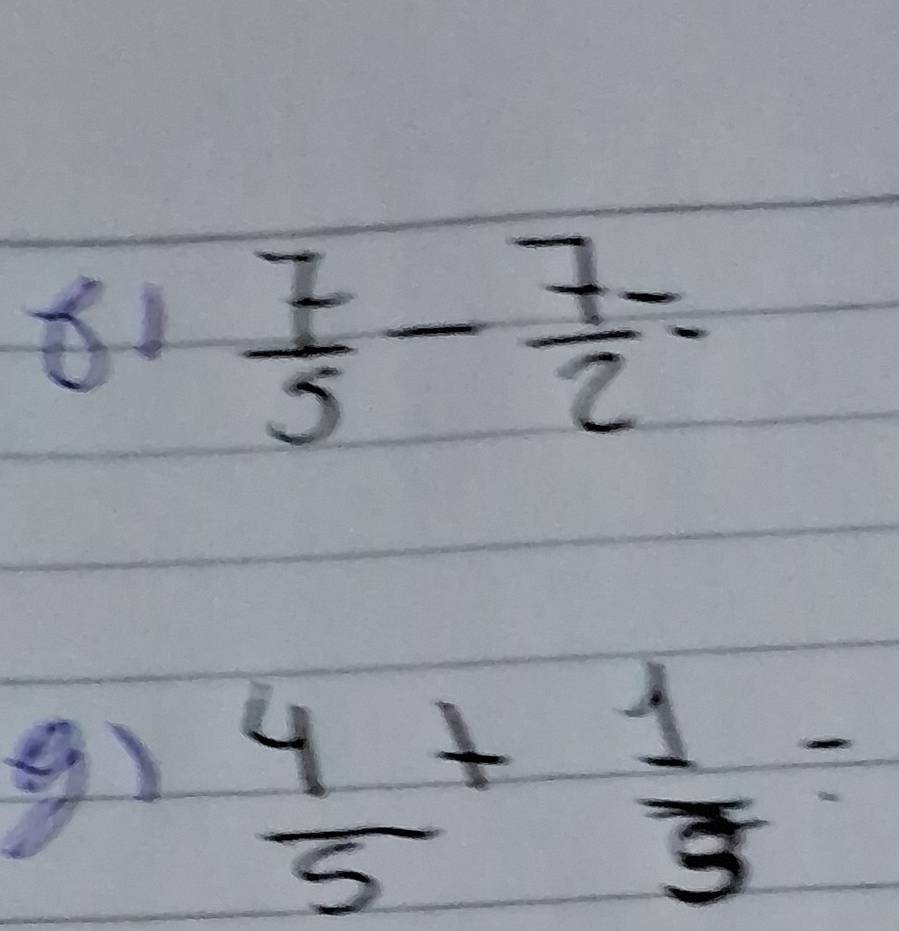 8) 7/5 - 7/2 =
9) 4/5 + 1/3 =